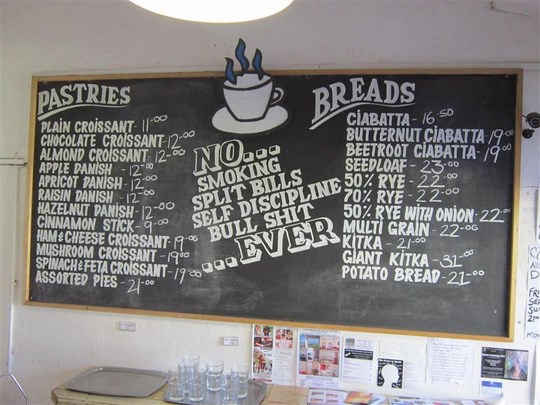 PASTRIES
PLAIN CROISSANT - 11-00
CHOCOLATE CROISSANT - 12-00
ALMOND CROISSANT - 12-00
APPLE DANISH - 12-00
APRICOT DANISH - 12-00
RAISIN DANISH - 12-00
HAZELNUT DANISH - 12-00
CINNAMON STICK - 9-00
HAM & CHEESE CROISSANT - 19-00
MUSHROOM CROISSANT - 19-00
SPINACH & FETA CROISSANT - 19-00
ASSORTED PIES - 21-00
NO...
SMOKING
SPLIT BILLS
SELF DISCIPLINE
BULL SHIT
...EVER
BREADS
CIABATTA - 16-50
BUTTERNUT CIABATTA 19-00
BEETROOT CIABATTA - 19-00
SEEDLOAF - 23-00
50% RYE - 22-00
70% RYE - 22-00
50% RYE WITH ONION - 22-00
MULTI GRAIN - 22-00
KITKA - 21-00
GIANT KITKA - 31-00
POTATO BREAD - 21-00